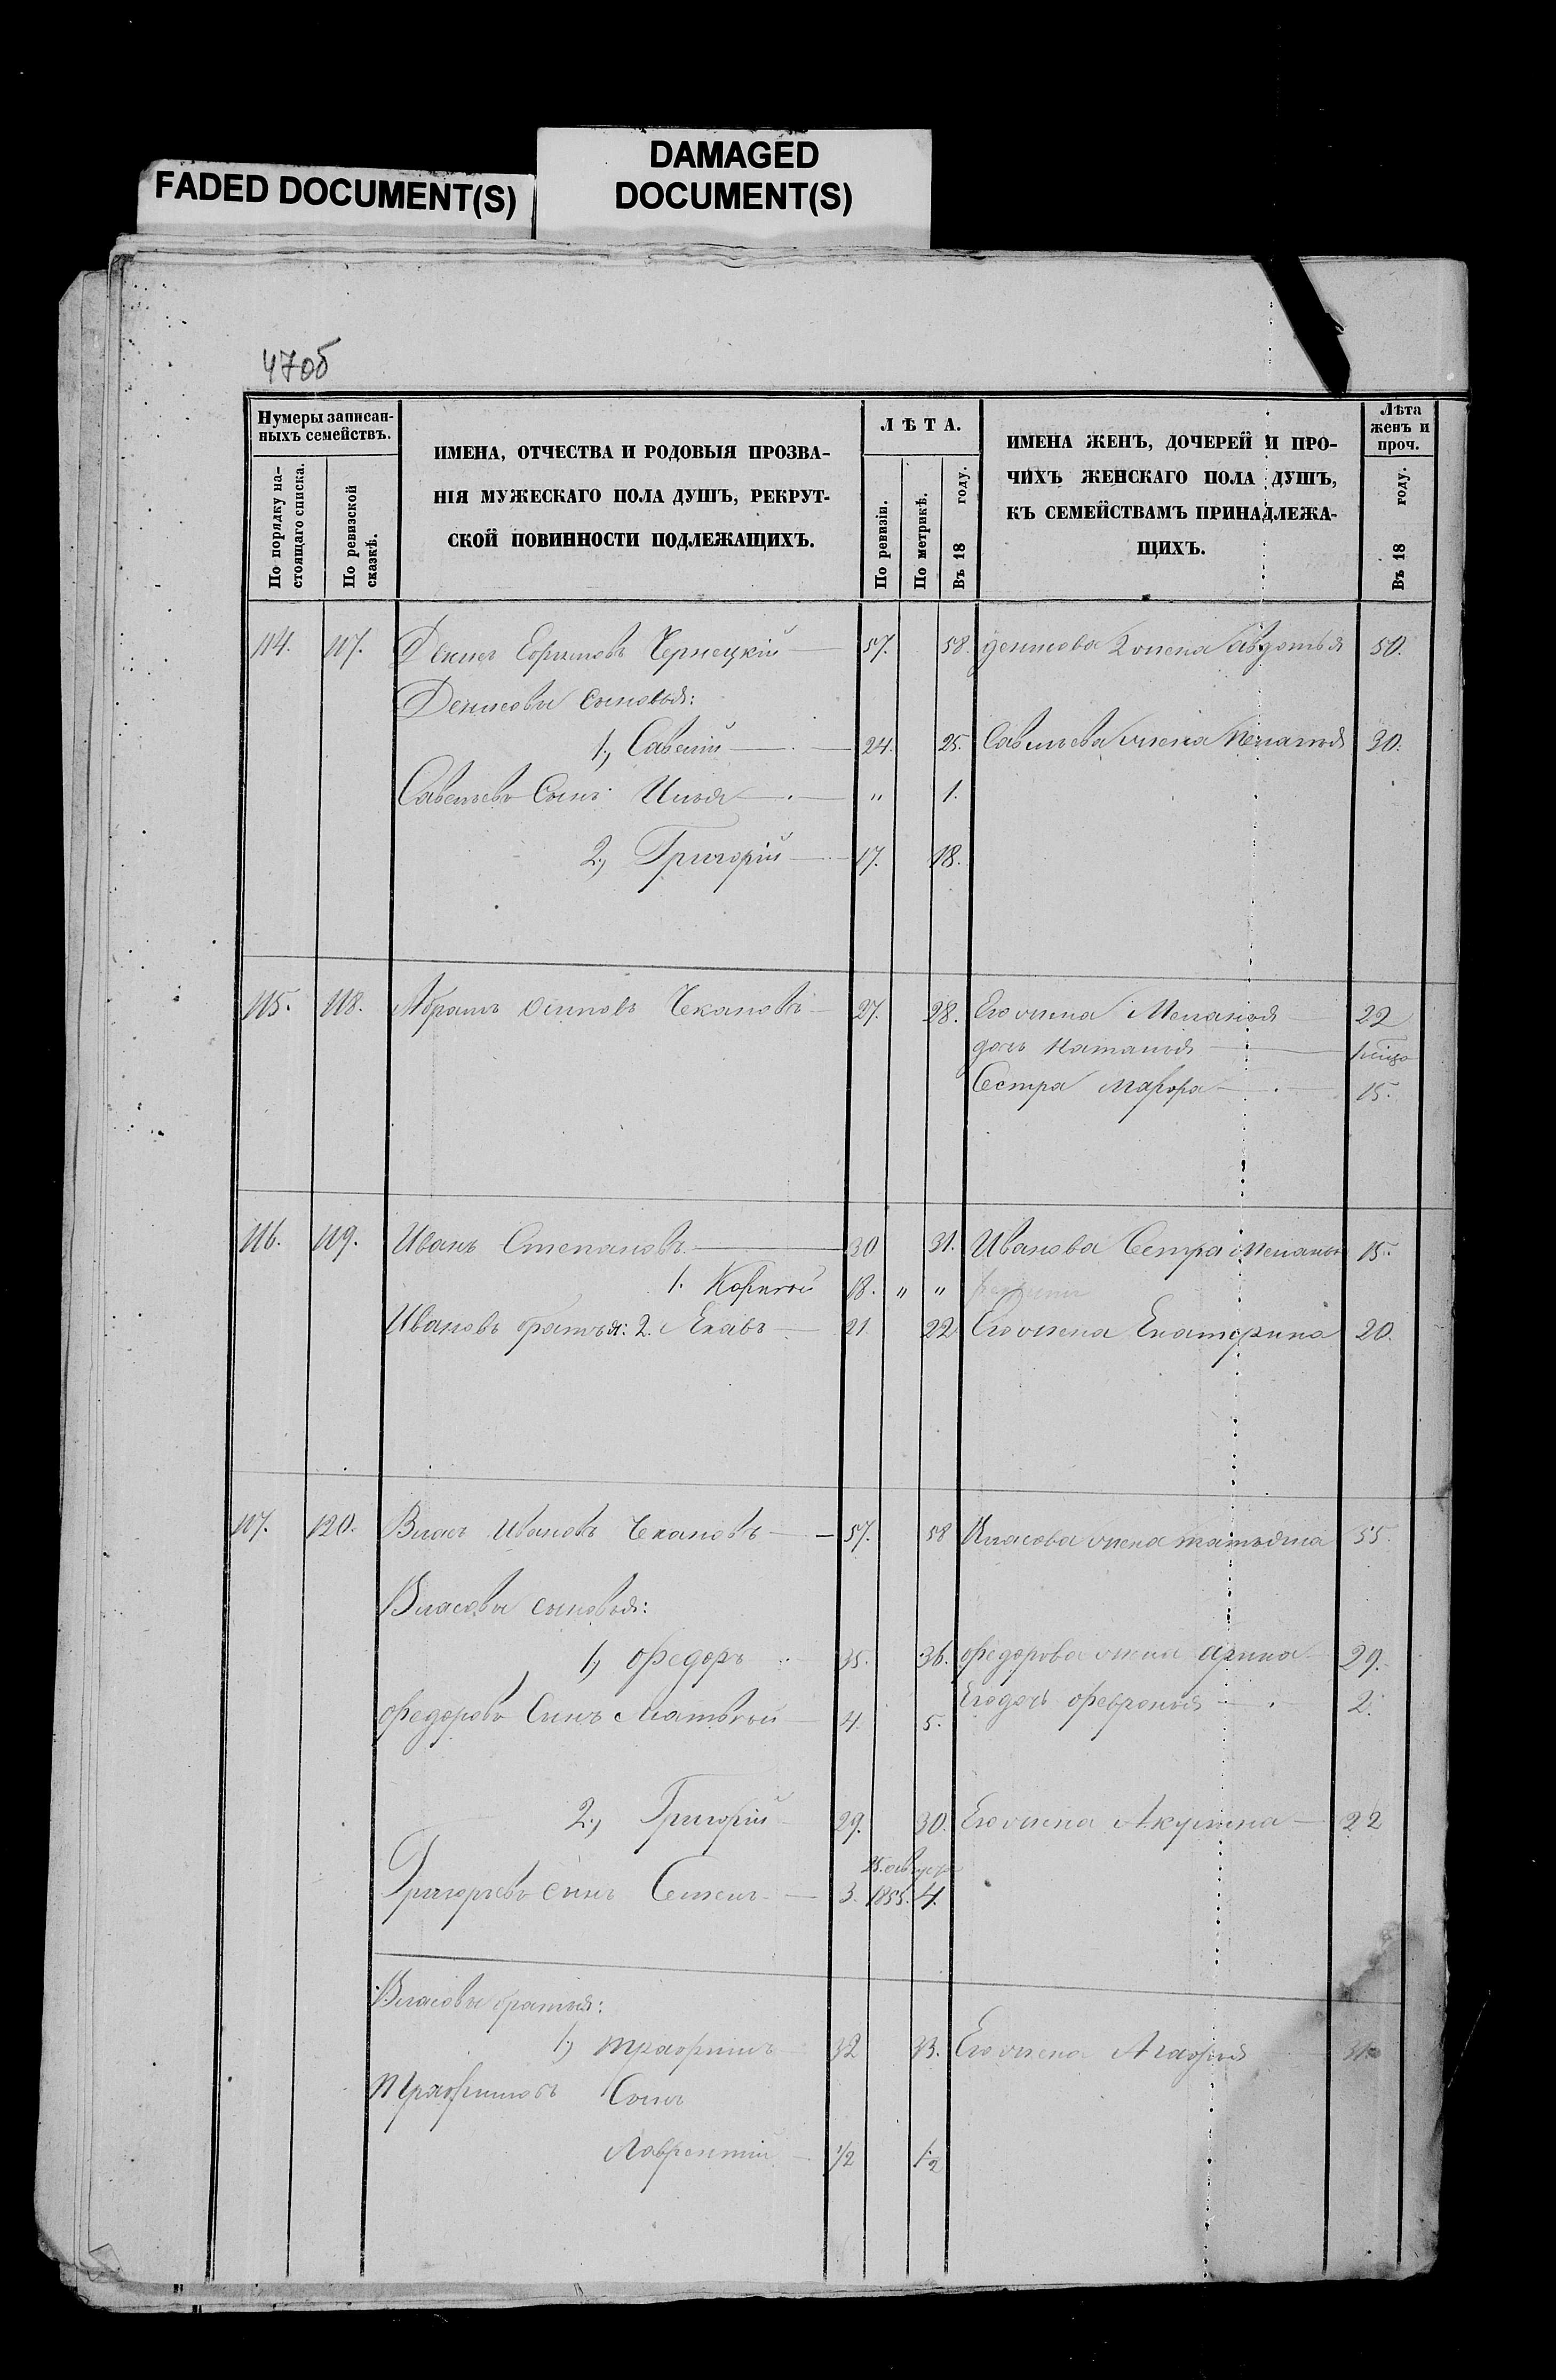 FADED DOCUMENT(S)
DAMAGED
DOCUMENT(S)
47об
Нумеры записан-
ныхъ семействъ.
По порядку на-
стоящаго списка.
По ревизской
сказкѣ.
ИМЕНА, ОТЧЕСТВА И РОДОВЫЯ ПРОЗВА-
НІЯ МУЖЕСКАГО ПОЛА ДУШЪ, РЕКРУТ-
СКОЙ ПОВИННОСТИ ПОДЛЕЖАЩИХЪ.
ЛѢТА.
По ревизіи.
По метрикѣ.
Въ 18 году.
ИМЕНА ЖЕНЪ, ДОЧЕРЕЙ И ПРО-
ЧИХЪ ЖЕНСКАГО ПОЛА ДУШЪ,
КЪ СЕМЕЙСТВАМЪ ПРИНАДЛЕЖА-
ЩИХЪ.
Лѣта
женъ и
проч.
Въ 18 году.
114. 117. Денис Ефимовъ Чернецкій 57. 58. Денисова 2 жена Авдотья 50.
Денисовы сыновья:
1, Савелій 24. 25. Савельева жена 30.
Савельевъ Сынъ Илья " 1.
2, Григорій 17. 18.
115. 118. Абрамъ Осиповъ Чекановъ 27. 28. Его жена Меланья 22
дочь Наталья
Сестра Мавра 15.
116. 119. Иванъ Степановъ 30 31. Иванова Сестра 15.
1. Корнѣй 18. " "
Ивановъ братья: 2. 21. 22 Его жена Екатерина 20.
117. 120. Влас Ивановъ Чекановъ 57. 58 Власова жена татьяна 55.
Власовы сыновья:
1, Федоръ 35. 36. Федорова жена арина 29.
Федоровъ Сынъ Матвѣй 4. 5. Его дочь Февронья 2.
2, Григорій 29. 30. Его жена Акулина 22
25. август
Григорьевъ сынъ Семенъ 3. 1855. 4.
Власовы братья:
1, трафимъ 32 33. Его жена Агафья
Трафимовъ Сынъ
Лаврентій 1/2 1 1/2